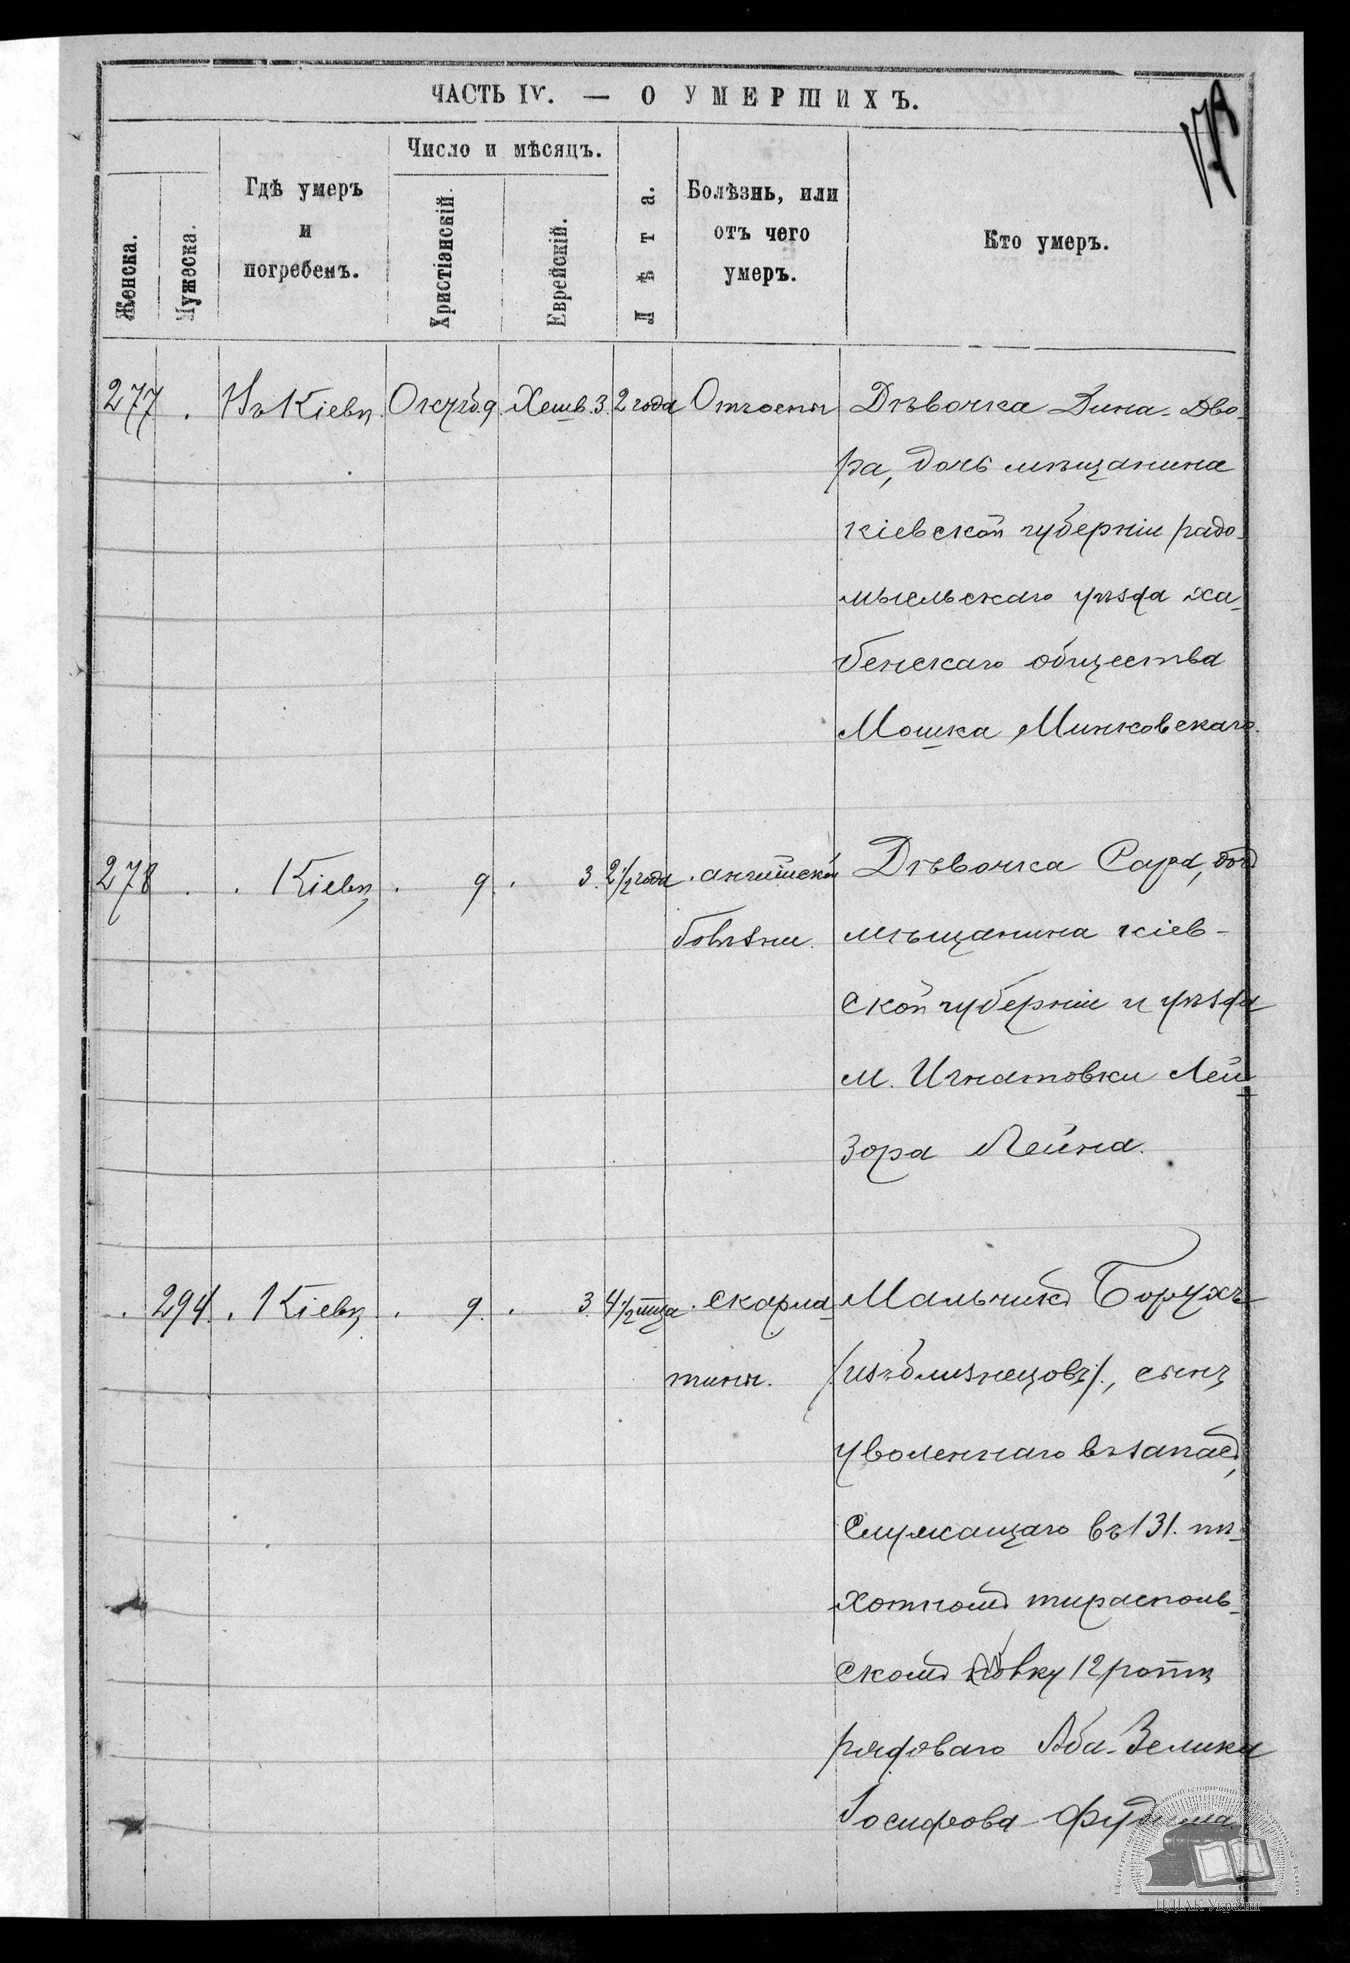 ЧАСТЬ IV. — О УМЕРШИХЪ.
Женска.
Мужеска.
Гдѣ умеръ
и
погребенъ.
Число и мѣсяцъ.
Христіанскій.
Еврейскій.
Лѣта.
Болѣзнь, или
отъ чего
умеръ.
Кто умеръ.
277 . Въ Кіевѣ. Октб. 9. Хешв. 3. 2 года Отъ оспы Дѣвочка Дина-Дво-
ра, дочь мѣщанина
кіевской губерніи радо-
мысльскаго уѣзда ха-
бенскаго общества
Мошка Минковскаго.
278 . . Кіевѣ . 9. . 3. 2 1/2 года . англійской Дѣвочка Сара, дочь
болѣзни. мѣщанина кіев-
ской губерніи и уѣзда
м. Игнатовки Лей-
зора Лейна.
. 294. . Кіевѣ . 9. . 3. 4 1/2 мца . скарла- Мальчикъ Борухъ
тины. /изъ близнецовъ/, сынъ
уволеннаго въ запасъ,
служащаго въ 131. пѣ-
хотномъ тирасполь-
скомъ полку 12 ротѣ
рядоваго Аба-Зелика
Іосифова Фудима
ЦДІАК України